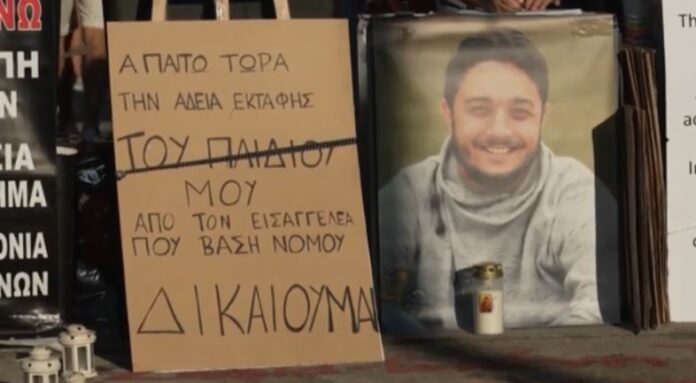 ΝΟ
ΠΗ
Ν
ΣΙΑ
ΗΜΑ
ΟΝΙΑ
ΝΩΝ
ΑΠΑΙΤΟ ΤΩΡΑ
ΤΗΝ ΑΔΕΙΑ ΕΚΤΑΦΗΣ
ΤΟΥ ΠΑΙΔΙΟΥ
ΜΟΥ
ΑΠΟ ΤΟΝ ΕΙΣΑΓΓΕΛΕΑ
ΠΟΥ ΒΑΣΗ ΝΟΜΟΥ
ΔΙΚΑΙΟΥΜΑ
Th
ac
In